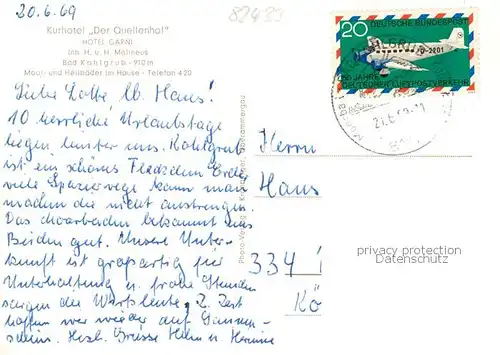 20.6.69
82433
Kurhotel „Der Quellenhof"
HOTEL GARNI
Inh. H. u. H. Molineus
Bad Kohlgrub - 910 m
Moor- und Heilbäder im Hause - Telefon 420
Liebe Lotte, lb. Hans!
10 herrliche Urlaubstage
liegen hinter uns. Kohlgrub
ist ein schönes Fleckchen Erde,
viele Spazierwege kann man
machen die nicht anstrengen.
Das bekommt uns
Beiden gut. Unsere Unter-
kunft ist großartig für
Unterhaltung u. frohe Stunden
sorgen die Wirtsleute. Z. Zeit
hoffen wir wieder auf Sonnen-
schein. Herzl. Grüsse
DEUTSCHE BUNDESPOST
20
D-2201
50 JAHRE
DEUTSCHER LUFTPOSTVERKEHR
Herrn
Hans
334
Kö
privacy protection
Datenschutz
Photo-Verlag Oberammergau